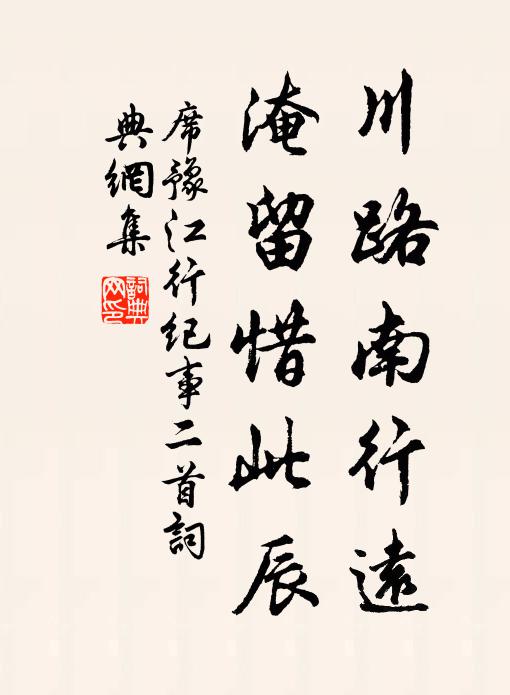 川路南行遠
淹留惜此辰
席豫江行纪事二首詞
典網集
詞典
网印